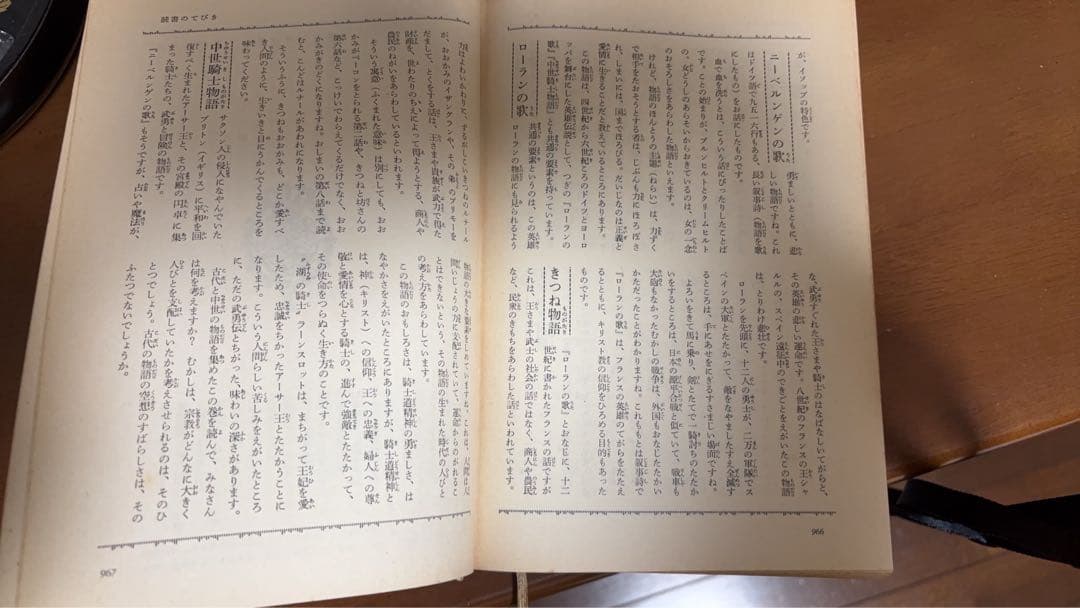 が、イソップの特色です。
ニーベルンゲンの歌
勇ましいとともに、悲
しい物語ですね。これ
はドイツ語で九五一六行もある、長い叙事詩(物語を歌
にしたもの)をお話にしたものです。
血で血を洗うとは、こういう話にぴったりしたことば
です。ことの始まりが、ブルンヒルトとクリームヒルト
の、女どうしのあらそいからおきているのは、女の一念
のおそろしさをあらわした物語ともいえます。
けれど、物語のほんとうの主題(ねらい)は、力ずく
で相手をたおそうとする者は、じぶんも力にほろぼさ
れ、しまいには、国までほろびる。だいじなのは正義と
愛情に生きることだと教えているところにあります。
この物語は、四世紀から六世紀ころのドイツとヨーロ
ッパを舞台にした英雄伝説として、つぎの『ローランの
歌』『中世騎士物語』とも共通の要素を持っています。
ローランの歌
共通の要素というのは、この英雄
ローランの物語にも見られるよう
な、武勇すぐれた王さまや騎士のはなばなしいてがらと、
その英雄の悲しい運命です。八世紀のフランスの王シャ
ルルの、スペイン遠征中のできごとをえがいたこの物語
は、とりわけ悲壮です。
ローランを先頭に、十二人の勇士が、二万の軍隊でス
ペインの大軍とたたかって、敵をなやましたすえ全滅す
るところは、手にあせをにぎるすさまじい場面ですね。
よろいをきて馬に乗り、剣とたてで一騎討ちのたたか
いをするところは、日本の源平合戦と似ていて、戦車も
大砲もなかったむかしの戦争は、外国もおなじたたかい
かただったことがわかりますね。これももとは叙事詩で
『ローランの歌』は、フランスの英雄のてがらをたたえ
るとともに、キリスト教の信仰をひろめる目的もあった
ものです。
きつね物語
『ローランの歌』とおなじに、十二
世紀に書かれたフランスの話ですが
これは、王さまや武士の社会の話ではなく、商人や農民
など、民衆のきもちをあらわした話といわれています。
966
読書のてびき
力はよわいかわりに、ずるがしこいきつねのルナール
が、おおかみのイザングランや、その弟のプリモーを
だまして、とくをする話は、王さまや貴族が武力で得た
財産を、世わたりのちえによって得ようとする、商人や
農民のねがいをあらわしているといわれます。
そういう寓意(ふくまれた意味)は別にしても、おお
かみがベーコンをとられる第二話や、きつねと坊さんの
第六話など、こっけいでわらえてくるだけでなく、おお
かみがきのどくになりますね。おしまいの第八話まで読
むと、こんどはルナールがあわれになります。
そういうふうに、きつねもおおかみも、どこか愛すべ
き人間のように、生きいきと目にうかんでくるところを
味わってください。
中世騎士物語
サクソン人の侵入になやんでいた
ブリトン(イギリス)に平和を回
復すべく生まれたアーサー王と、その宮殿の円卓に集
まった騎士たちの、武勇と冒険の物語です。
『ニーベルンゲンの歌』もそうですが、占いや魔法が、
物語の大きな要素をしめていますね。これは、人間は人
間いじょうの力に支配されていて、運命からのがれるこ
とはできないという、その物語の生まれた時代の人びと
の考え方をあらわしています。
この物語のおもしろさは、騎士道精神の勇ましさ、は
なやかさをえがいたところにありますが、騎士道精神と
は、神(キリスト)への信仰、王への忠義、婦人への尊
敬と愛情を心とする騎士の、進んで強敵とたたかって、
その使命をつらぬく生き方のことです。
"湖の騎士"ラーンスロットは、まちがって王妃を愛
したため、忠誠をちかったアーサー王とたたかうことに
なります。こういう人間らしい苦しみをえがいたところ
に、ただの武勇伝とちがった、味わいの深さがあります。
古代と中世の物語を集めたこの巻を読んで、みなさん
は何を考えますか? むかしは、宗教がどんなに大きく
人びとを支配していたかを考えさせられるのは、そのひ
とつでしょう。古代の物語の空想のすばらしさは、その
ふたつでないでしょうか。
967